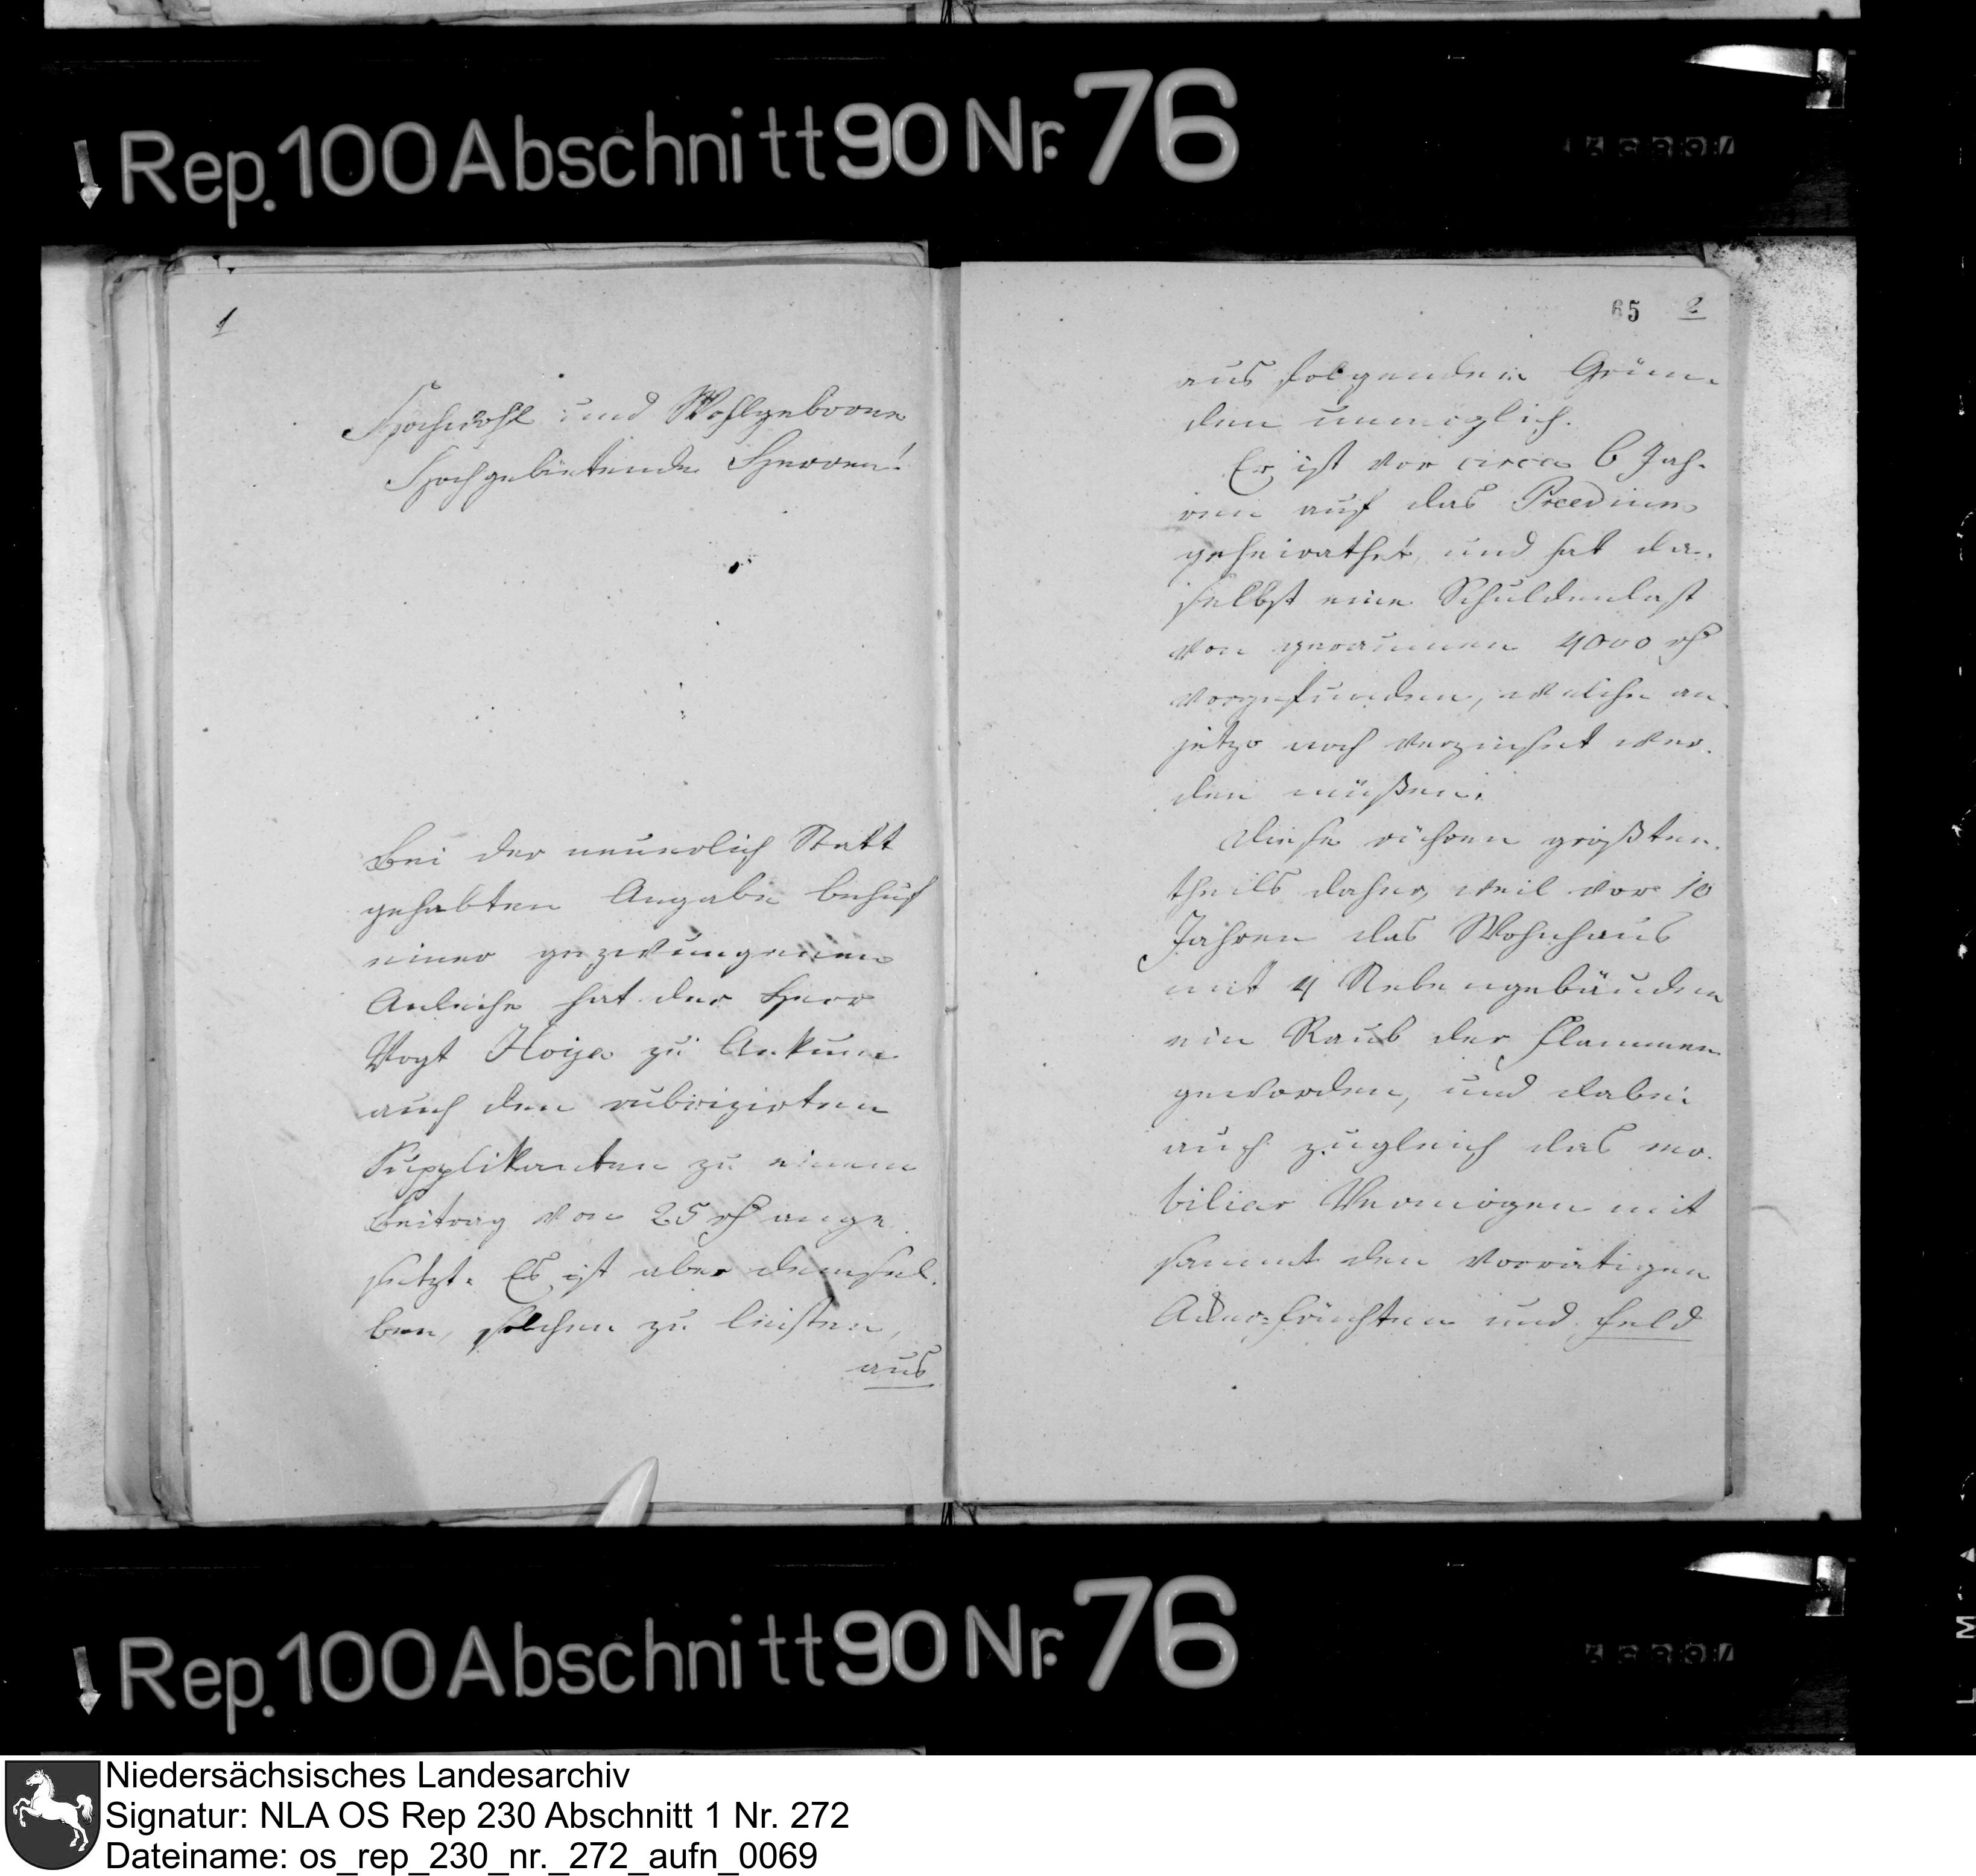 Rep. 100 Abschnitt 90 Nr. 76
1
Hochwohl und Wohlgeborne
Hochgebietende Herren!
Bei der neuerlich Statt
gehabten Angabe behuf
einer gezwungenen
Anleihe hat der Herr
Vogt Hoija zu Ankum
auch den rubrizirten
Supplikanten zu einem
Beitrag von 25 rh ange
setzt. Es ist aber demsel-
ben, solchen zu leisten,
aus
65 2
aus folgenden Grün-
den unmöglich.
Er ist vor circa 6 Jah-
ren auf das Praedium
geheirathet, und hat da-
selbst eine Schuldenlast
von geraumen 4000 rh
vorgefunden, welche an-
jetzo noch verzinset wer-
den müßen.
Diese rühren größten-
theils daher, weil vor 10
Jahren das Wohnhaus
mit 4 Nebengebäuden
ein Raub der Flammen
geworden, und dabei
auch zugleich das mo-
biliar Vermögen mit
sammt den vorrätigen
Acker-früchten und Feld
Rep. 100 Abschnitt 90 Nr. 76
Niedersächsisches Landesarchiv
Signatur: NLA OS Rep 230 Abschnitt 1 Nr. 272
Dateiname: os_rep_230_nr._272_aufn_0069